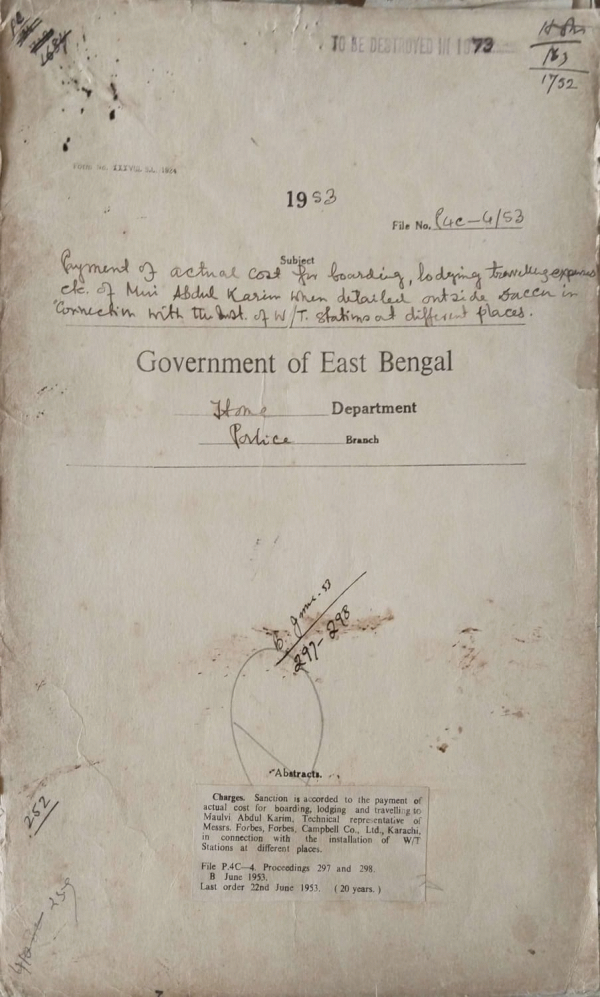 TO BE DESTROYED IN 1973
163
17/52
1953
File No. P4c-4/53
Subject
Payment of actual cost for boarding, lodging travelling expenses
etc. of Mvi Abdul Karim when detailed outside Dacca in
Connection with the Inst. of W/T. Stations at different places.
Government of East Bengal
Home Department
Police Branch
B. June. 53
297-298
Abstracts.
Charges. Sanction is accorded to the payment of
actual cost for boarding, lodging and travelling to
Maulvi Abdul Karim, Technical representative of
Messrs. Forbes, Forbes, Campbell Co., Ltd., Karachi,
in connection with the installation of W/T
Stations at different places.
File P.4C—4. Proceedings 297 and 298.
B June 1953.
Last order 22nd June 1953. (20 years.)
252